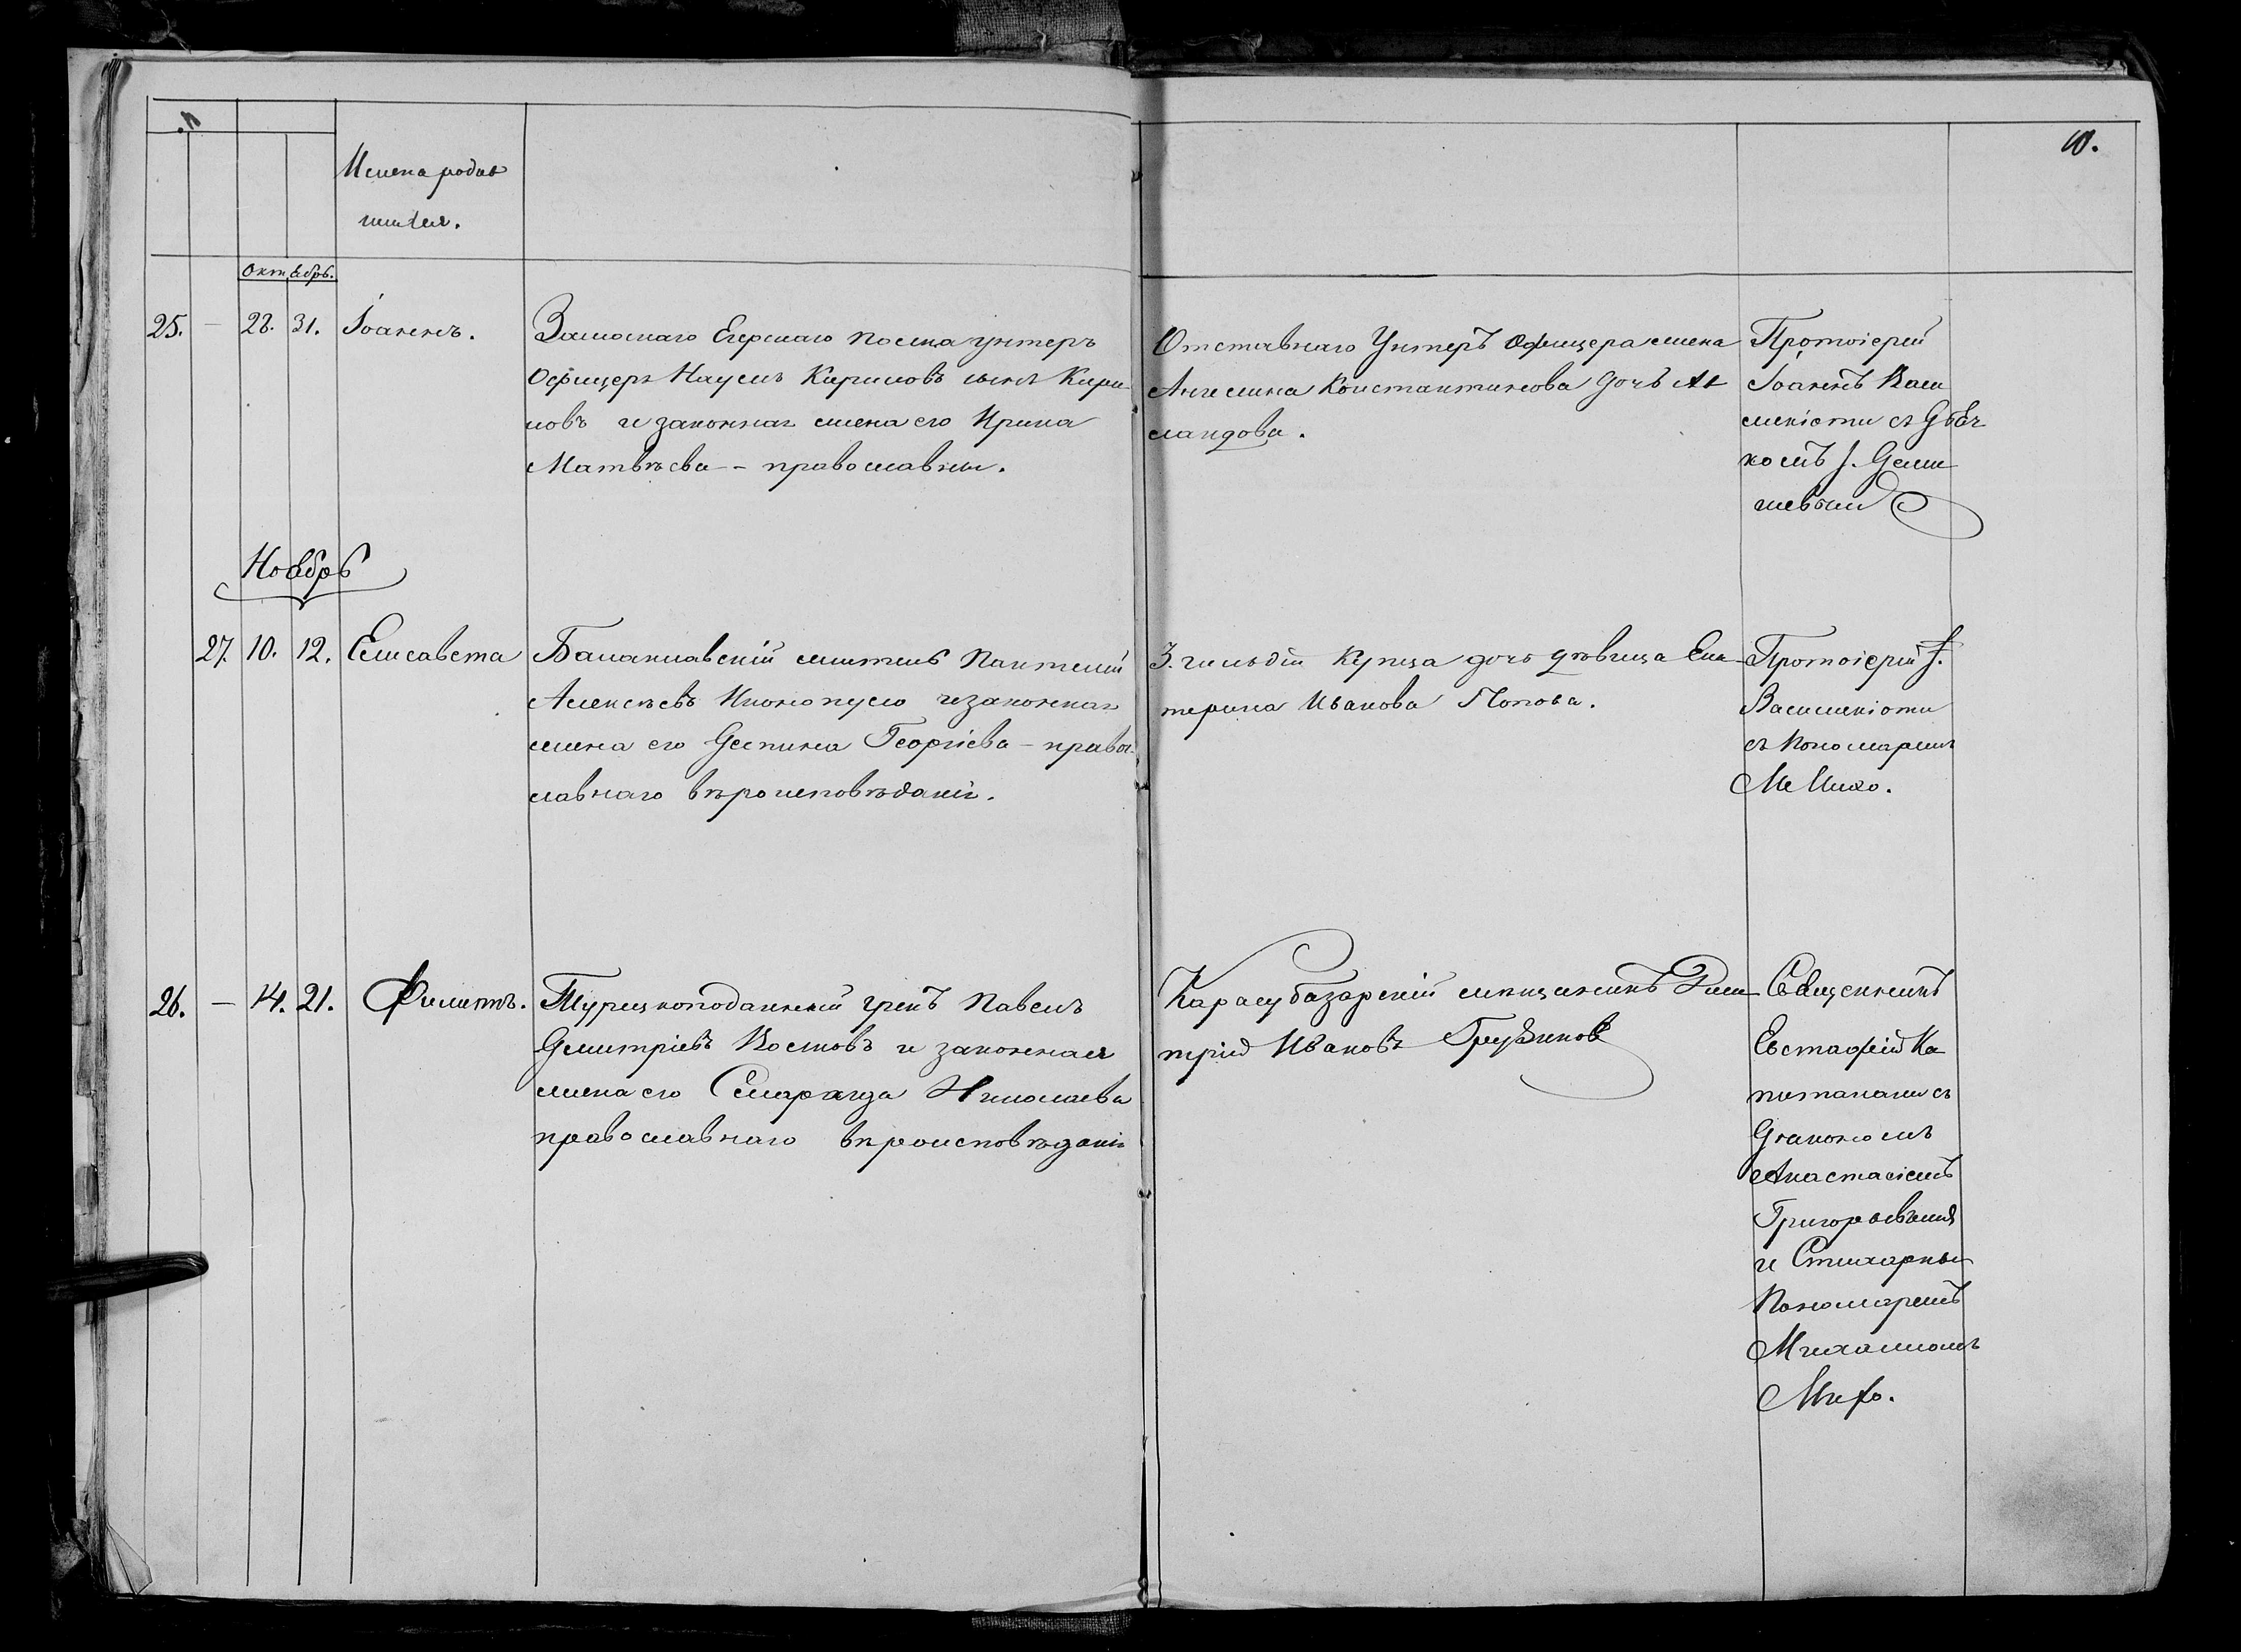 10.
Имена родив
шихся.
Октябрь.
25. — 28. 31. Іоаннъ.
Замоскаго Егерскаго полка унтеръ
Офицеръ Наумъ Кириловъ сынъ Кири-
ловъ и законная жена его Ирина
Матвѣева - православные.
Отставнаго Унтеръ Офицера жена
Ангелина Константинова дочь Ас
ландова.
Протоіерей
Іоаннъ Васи
ликіоти съ Дьяч
комъ І. Деми
Ноябрь
27. 10. 12. Елисавета
Балаклавскій житель Пантелей
Алексѣевъ Икономуло и законная
жена его Деспина Георгіева - право
славнаго вѣроисповѣданія.
3. гильдіи Купца дочь дѣвица Ека
терина Иванова Попова.
Протоіерей І.
Василикіоти
съ Пономаремъ
М Михо.
26. — 14. 21. Филиппъ.
Турецкоподанный грекъ Павелъ
Димитріевъ Костовъ и законная
жена его Смарагда Николаева
православнаго вѣроисповѣданія
Карасубазарскій мѣщанинъ Дими
трій Ивановъ Грузиновъ
Священникъ
Евстафій Ка
питанаки съ
Діакономъ
Анастасіемъ
Григорьевымъ
и Стихарнымъ
Пономаремъ
Михаиломъ
Михо.